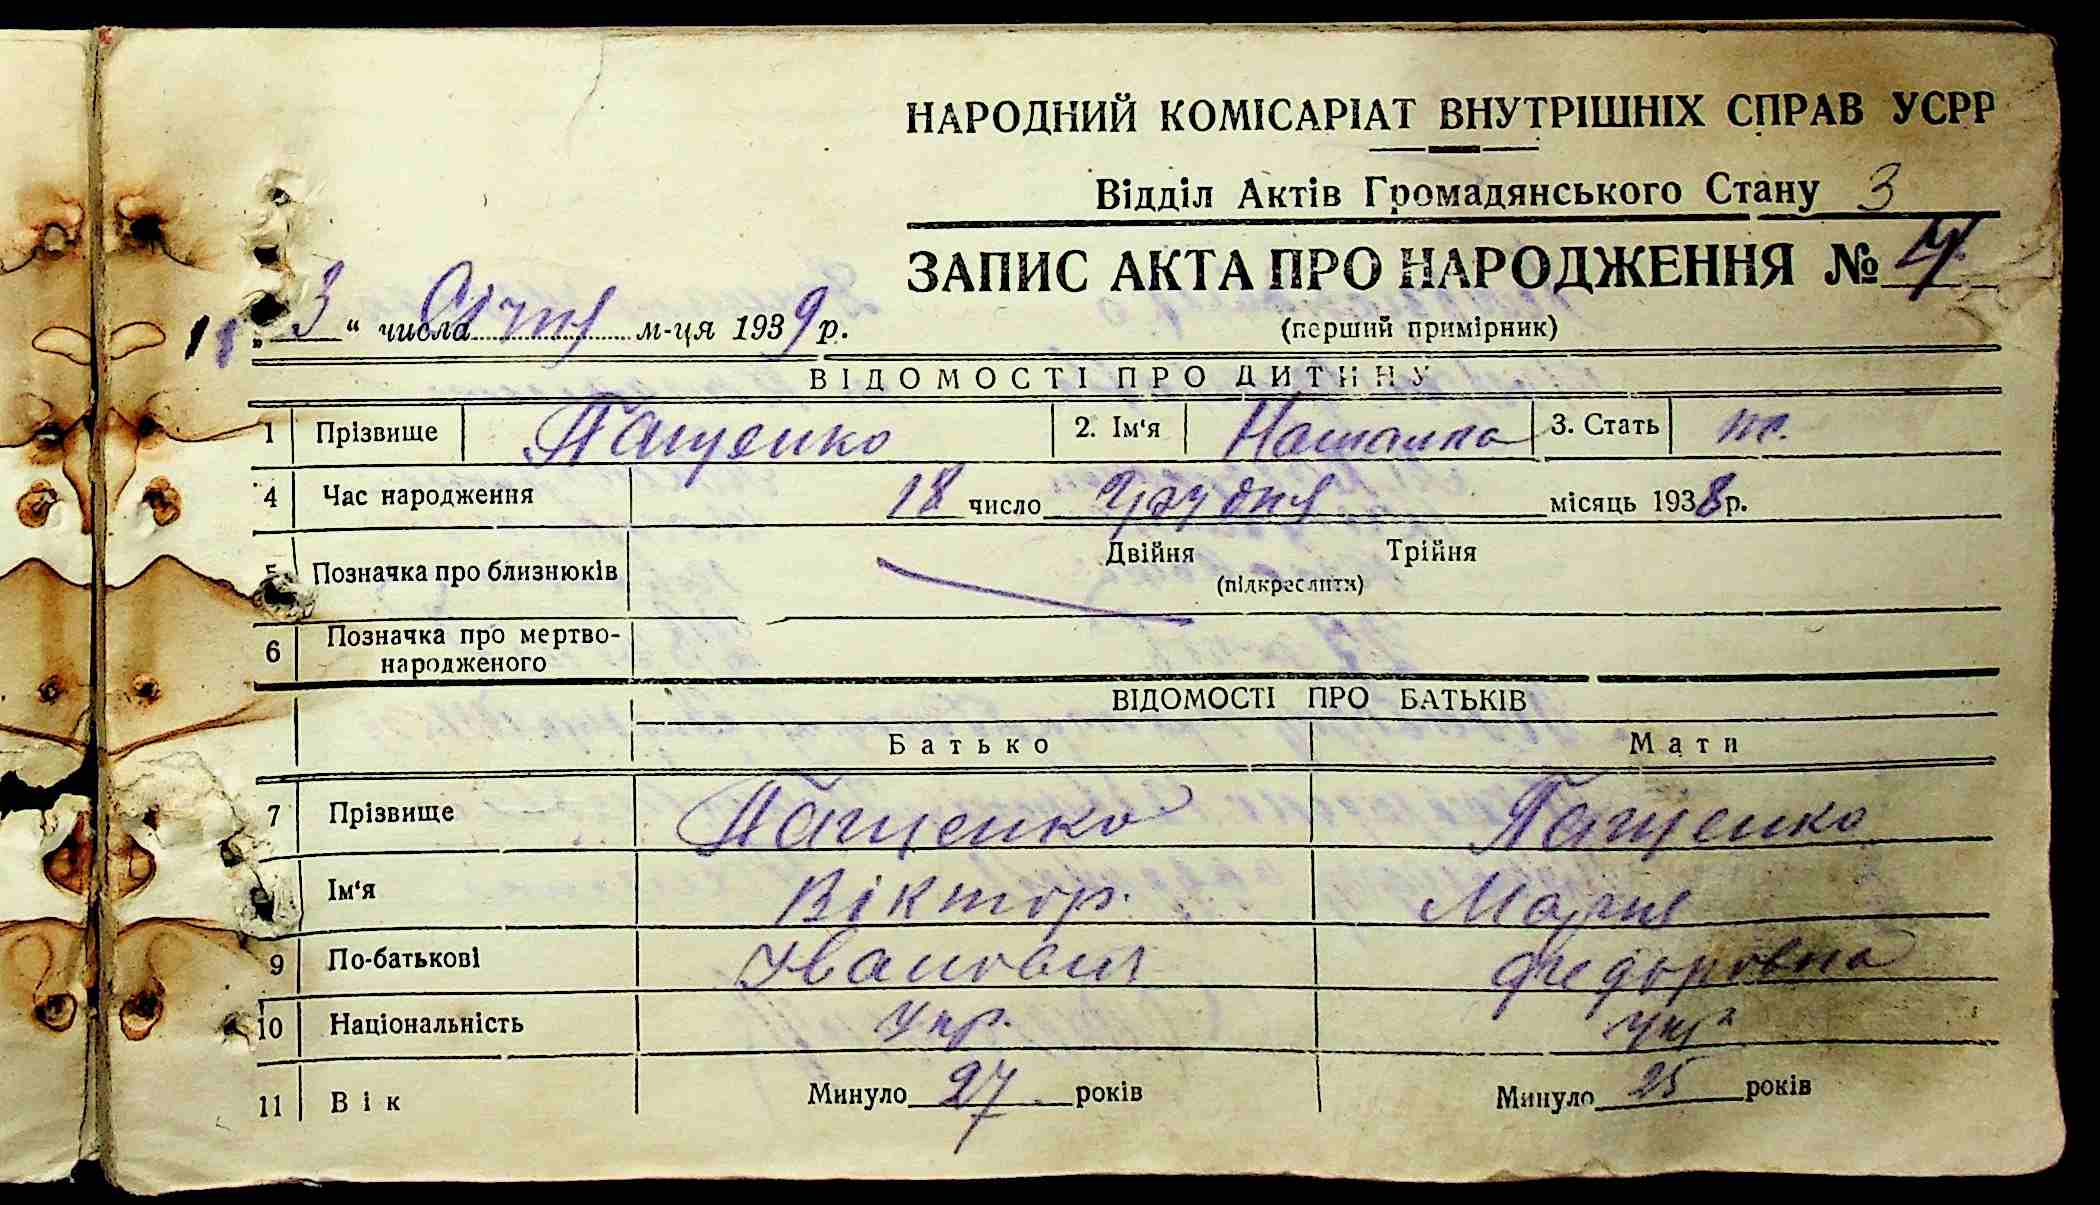 НАРОДНИЙ КОМІСАРІАТ ВНУТРІШНІХ СПРАВ УСРР
Відділ Актів Громадянського Стану 3
ЗАПИС АКТА ПРО НАРОДЖЕННЯ №
„3“ числа Січня м-ця 1939 р.
(перший примірник)
ВІДОМОСТІ ПРО ДИТИНУ
1 Прізвище Пащенко 2. Ім‘я Наталка 3. Стать
4 Час народження 18 число Грудня місяць 1938 р.
5 Позначка про близнюків Двійня Трійня
(підкреслити)
6 Позначка про мертво-
народженого
ВІДОМОСТІ ПРО БАТЬКІВ
Батько Мати
7 Прізвище Пащенко Пащенко
Ім‘я Віктор. Мария
9 По-батькові Іванович Федоровна
10 Національність Укр. Укр
11 Вік Минуло 27 років Минуло 25 років